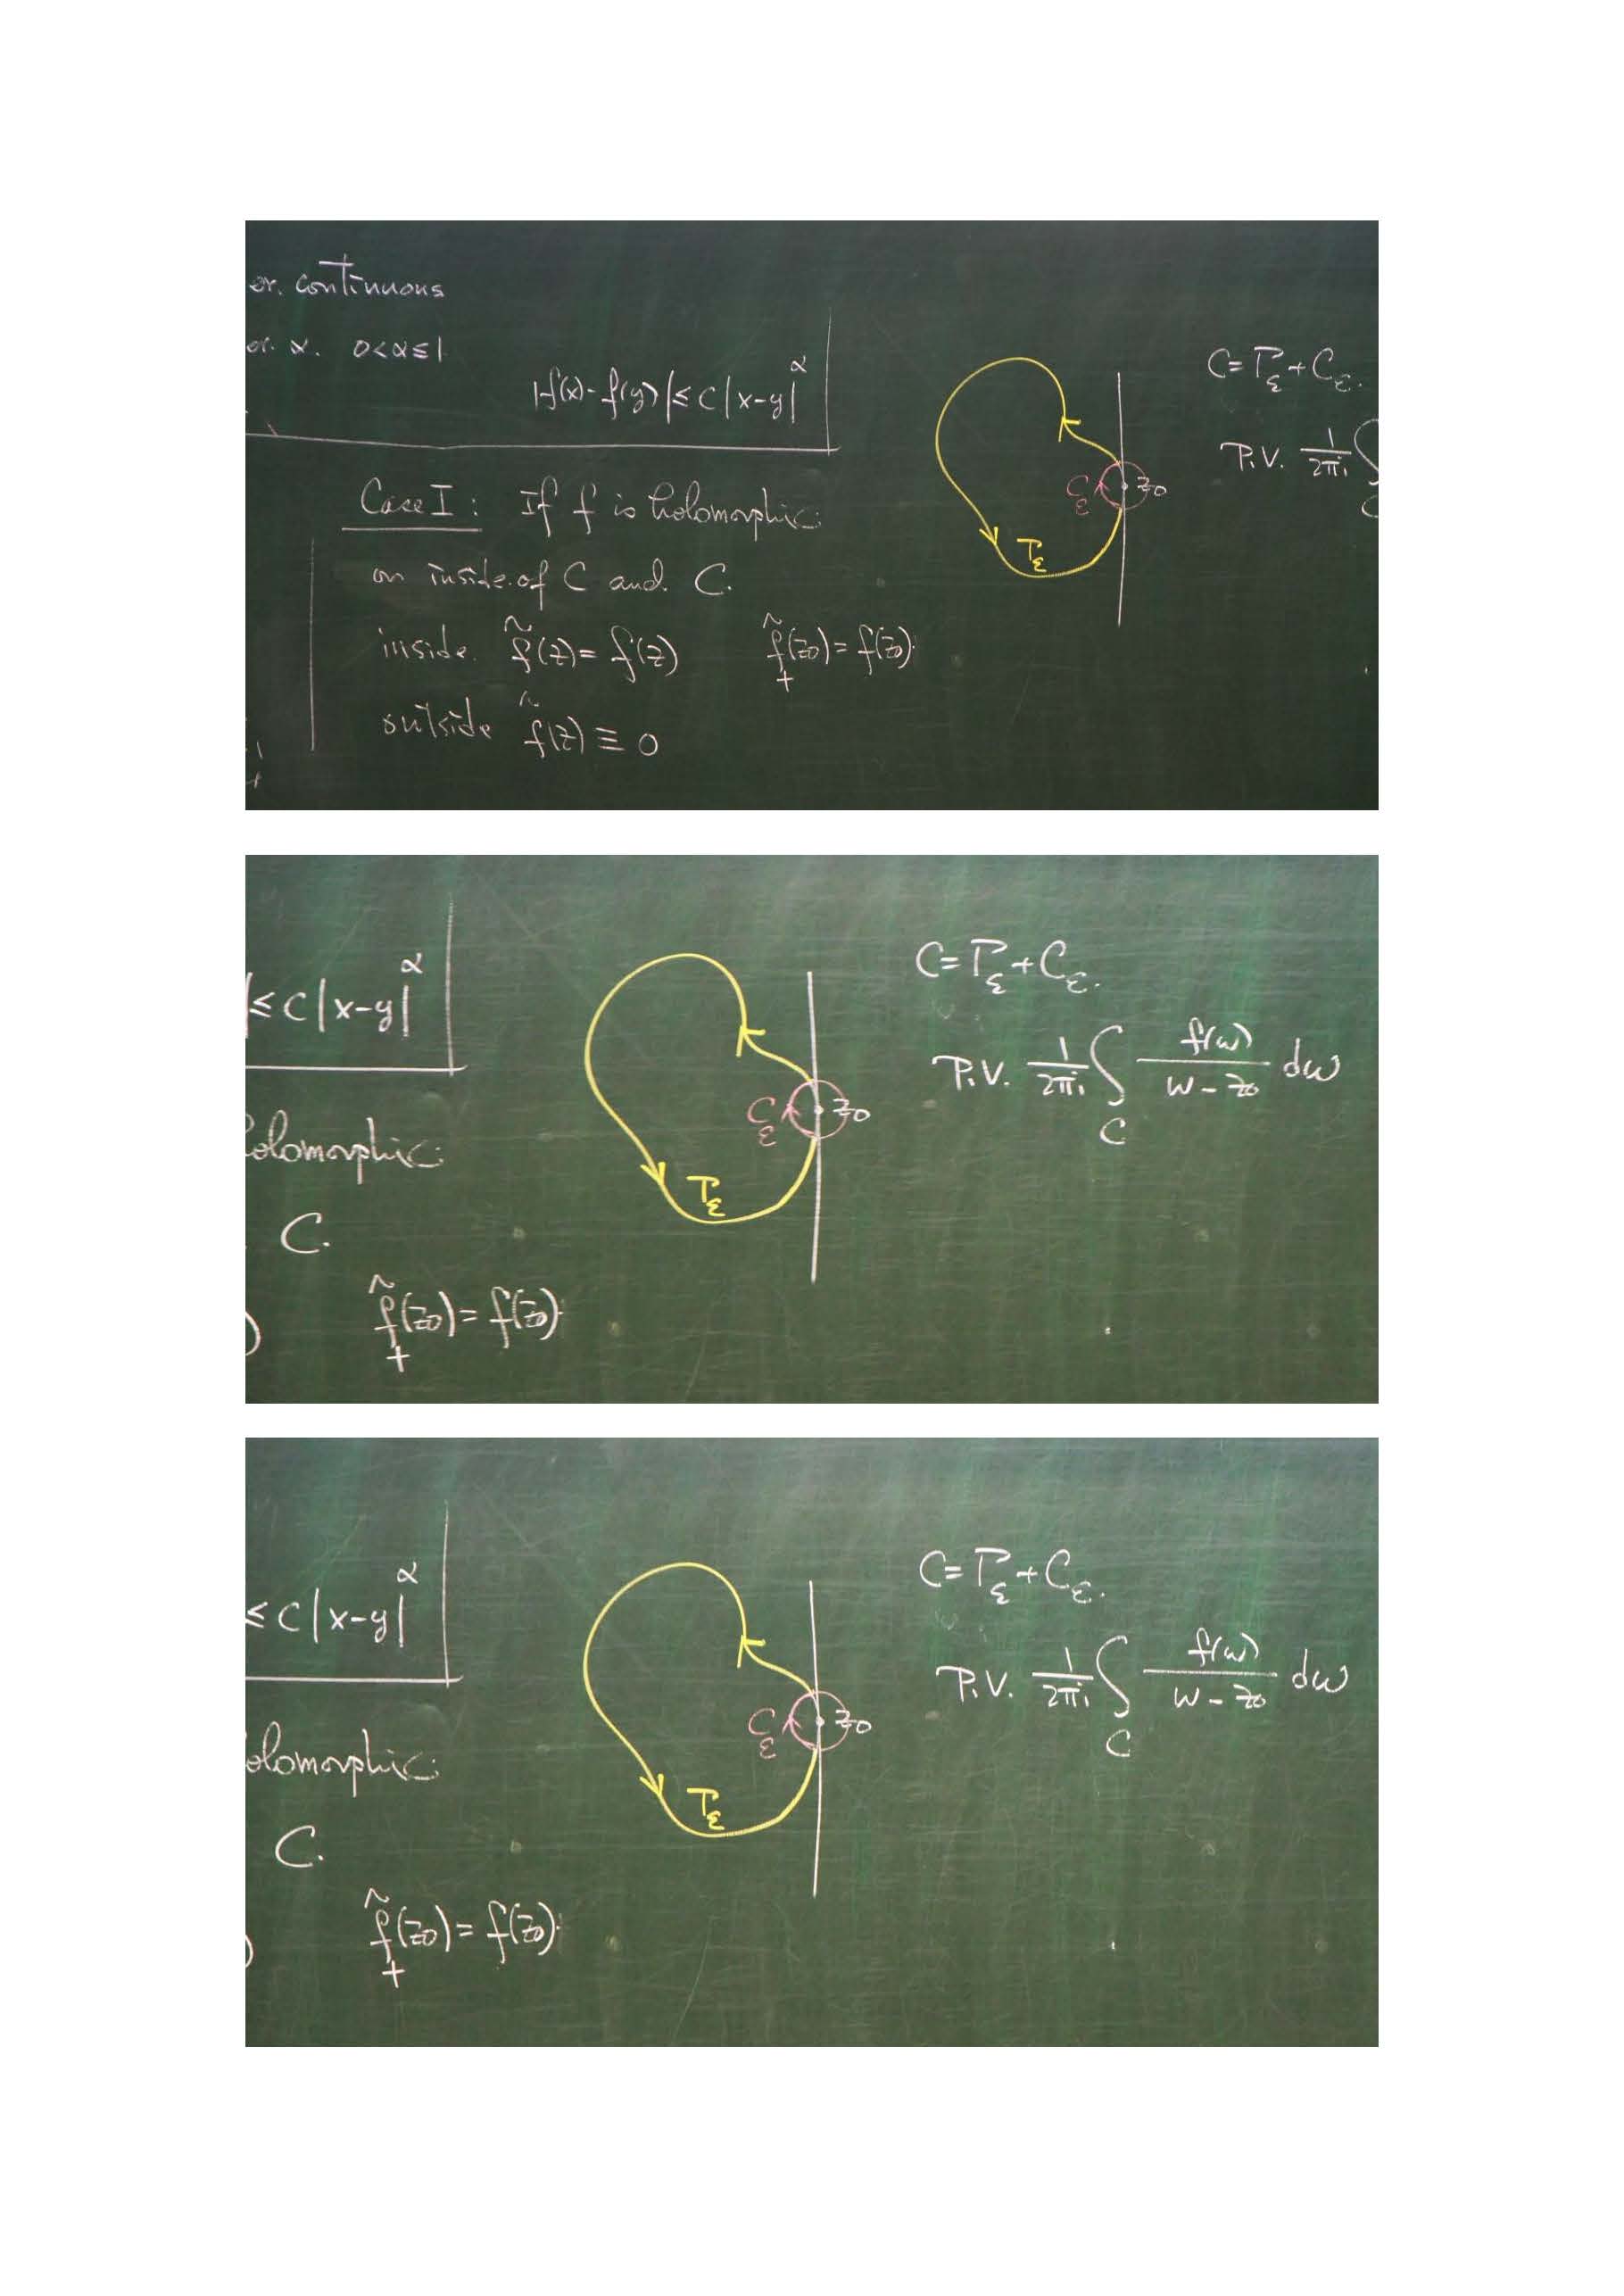 continuous
α. 0<α≤1
|f(x)-f(y)|≤C|x-y|^α
Case I: If f is holomorphic
on inside of C and C.
inside f̃(z)=f(z) f̃₊(z₀)=f(z₀).
outside f̃(z)≡0
C_ε z₀
Γ_ε
C=Γ_ε+C_ε.
P.V. 1/2πi ∫_C
≤C|x-y|^α
holomorphic
C.
f̃₊(z₀)=f(z₀)
C_ε z₀
Γ_ε
C=Γ_ε+C_ε.
P.V. 1/2πi ∫_C f(w)/(w-z₀) dw
≤C|x-y|^α
olomorphic
C.
f̃₊(z₀)=f(z₀)
C_ε z₀
Γ_ε
C=Γ_ε+C_ε.
P.V. 1/2πi ∫_C f(w)/(w-z₀) dw